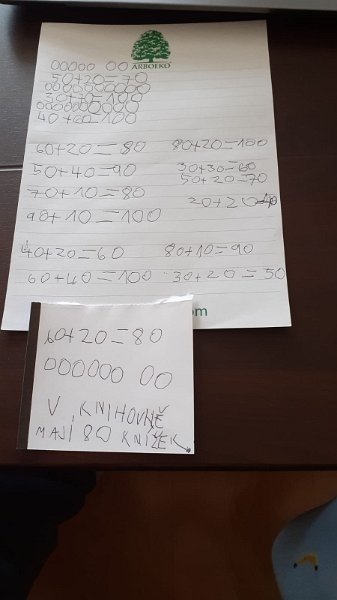 ARBOEKO
OOOOO OO
50+20=70
OOOOOOOOOO
OOOOOOOOOO
40+60=100
60+20=80 80+20=100
50+40=90 30+30=60
50+20=70
70+10=80
20+20=40
90+10=100
40+20=60 80+10=90
60+40=100 30+20=50
om
60+20=80
OOOOOO OO
V KNIHOVNĚ
MAJÍ 80 KNÍŽEK.